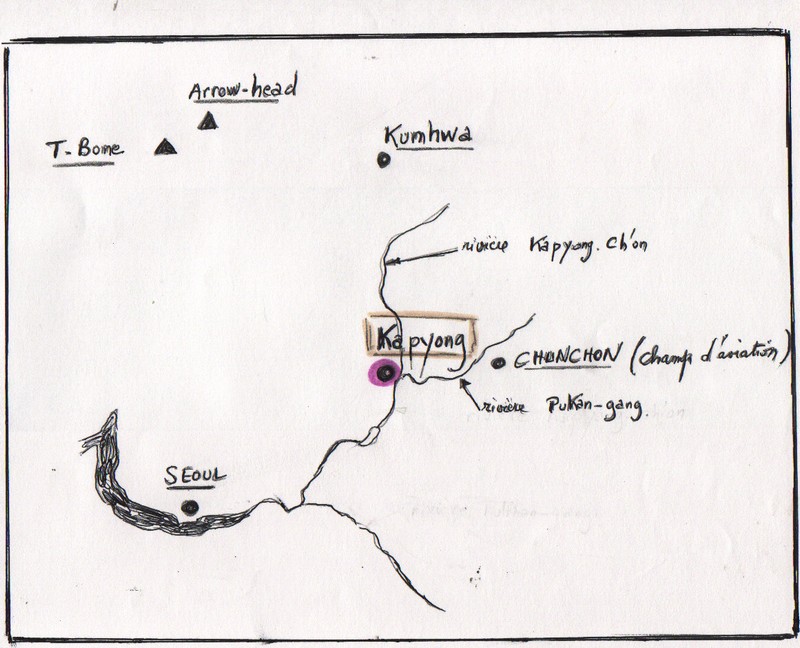 Arrow-head
T-Bone
Kumhwa
rivière Kapyong. Ch'on
Kapyong
CHUNCHON (champ d'aviation)
rivière Pukan-gang.
SEOUL